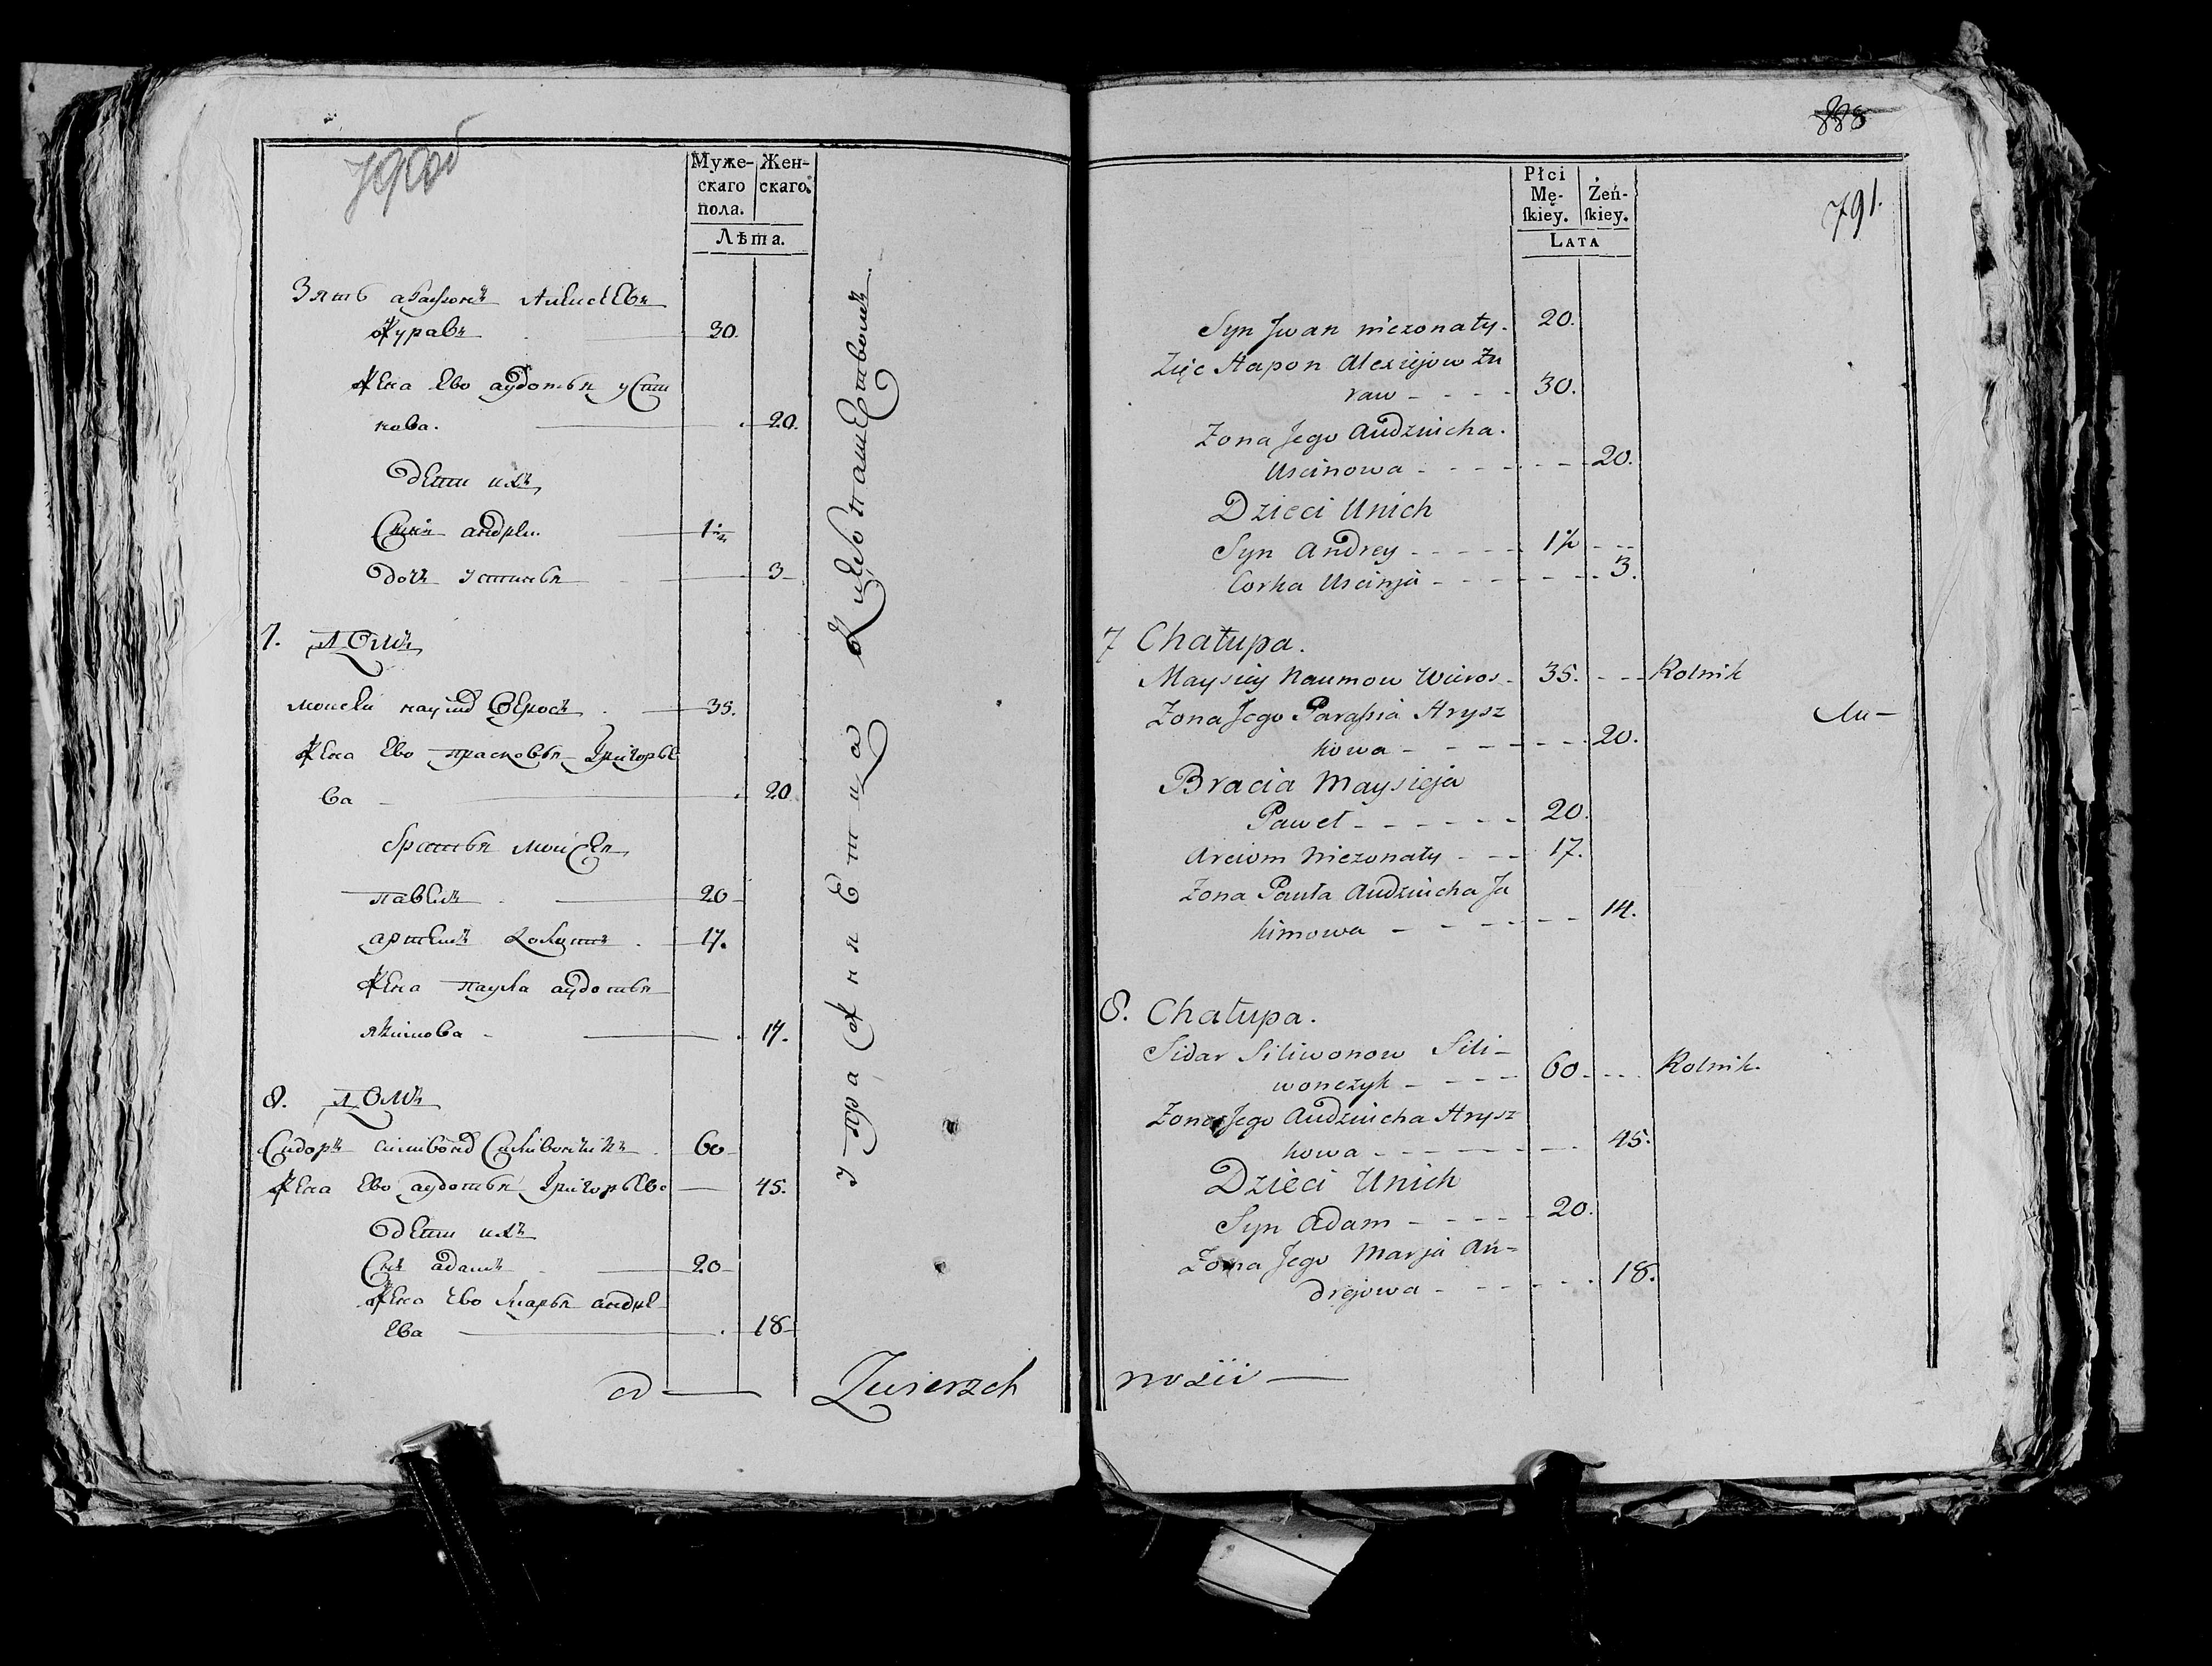 Муже-
скаго
пола.
Жен-
скаго.
Лѣта.
Зять Алексѣевъ
Журавъ 30.
Жена Ево аудотья усти
нова. 20.
дети ихъ
Сынъ андрей 1½
дочь устинья 3
7. ДОМЪ
моисей наумов Веросъ 35.
Жена Ево прасковья Григорье
ва 20
братья моисея
павелъ 20
артемъ холостъ 17.
Жена паула аудотья
якимова 14.
8. ДОМЪ
Сидоръ силивонов Силивончикъ 60
Жена Ево аудотья Григорьева 45.
дети ихъ
Снъ адамъ 20
Жена Ево Марья андре
Ева 18
упражняется хлебопашествомъ.
Zwierzch
888
791.
Płci
Mę-
ſkiey.
Żeń-
ſkiey.
LATA
Syn Jwan niezonaty. 20.
Zięc Hapon Alexiejow Żu
raw 30.
Zona Jego Audziucha.
Uscinowa 20.
Dzieci Unich
Syn Andrey 1½
Corka Uscinja 3.
7 Chałupa.
Maysiey Naumow Wieros 35. Rolnik
Zona Jego Paraſia Hrysz
kowa 20.
Bracia Maysieja
Paweł 20.
Arciom Niezonaty 17.
Zona Pauła Audziucha Ja
kimowa 14.
8. Chałupa.
Sidar Siliwonow Sili-
wonczyk 60 Rolnik.
Zona Jego Audziucha Hrysz
kowa 45.
Dzieci Unich
Syn Adam 20.
Zona Jego Marja An=
drejowa 18.
noźii